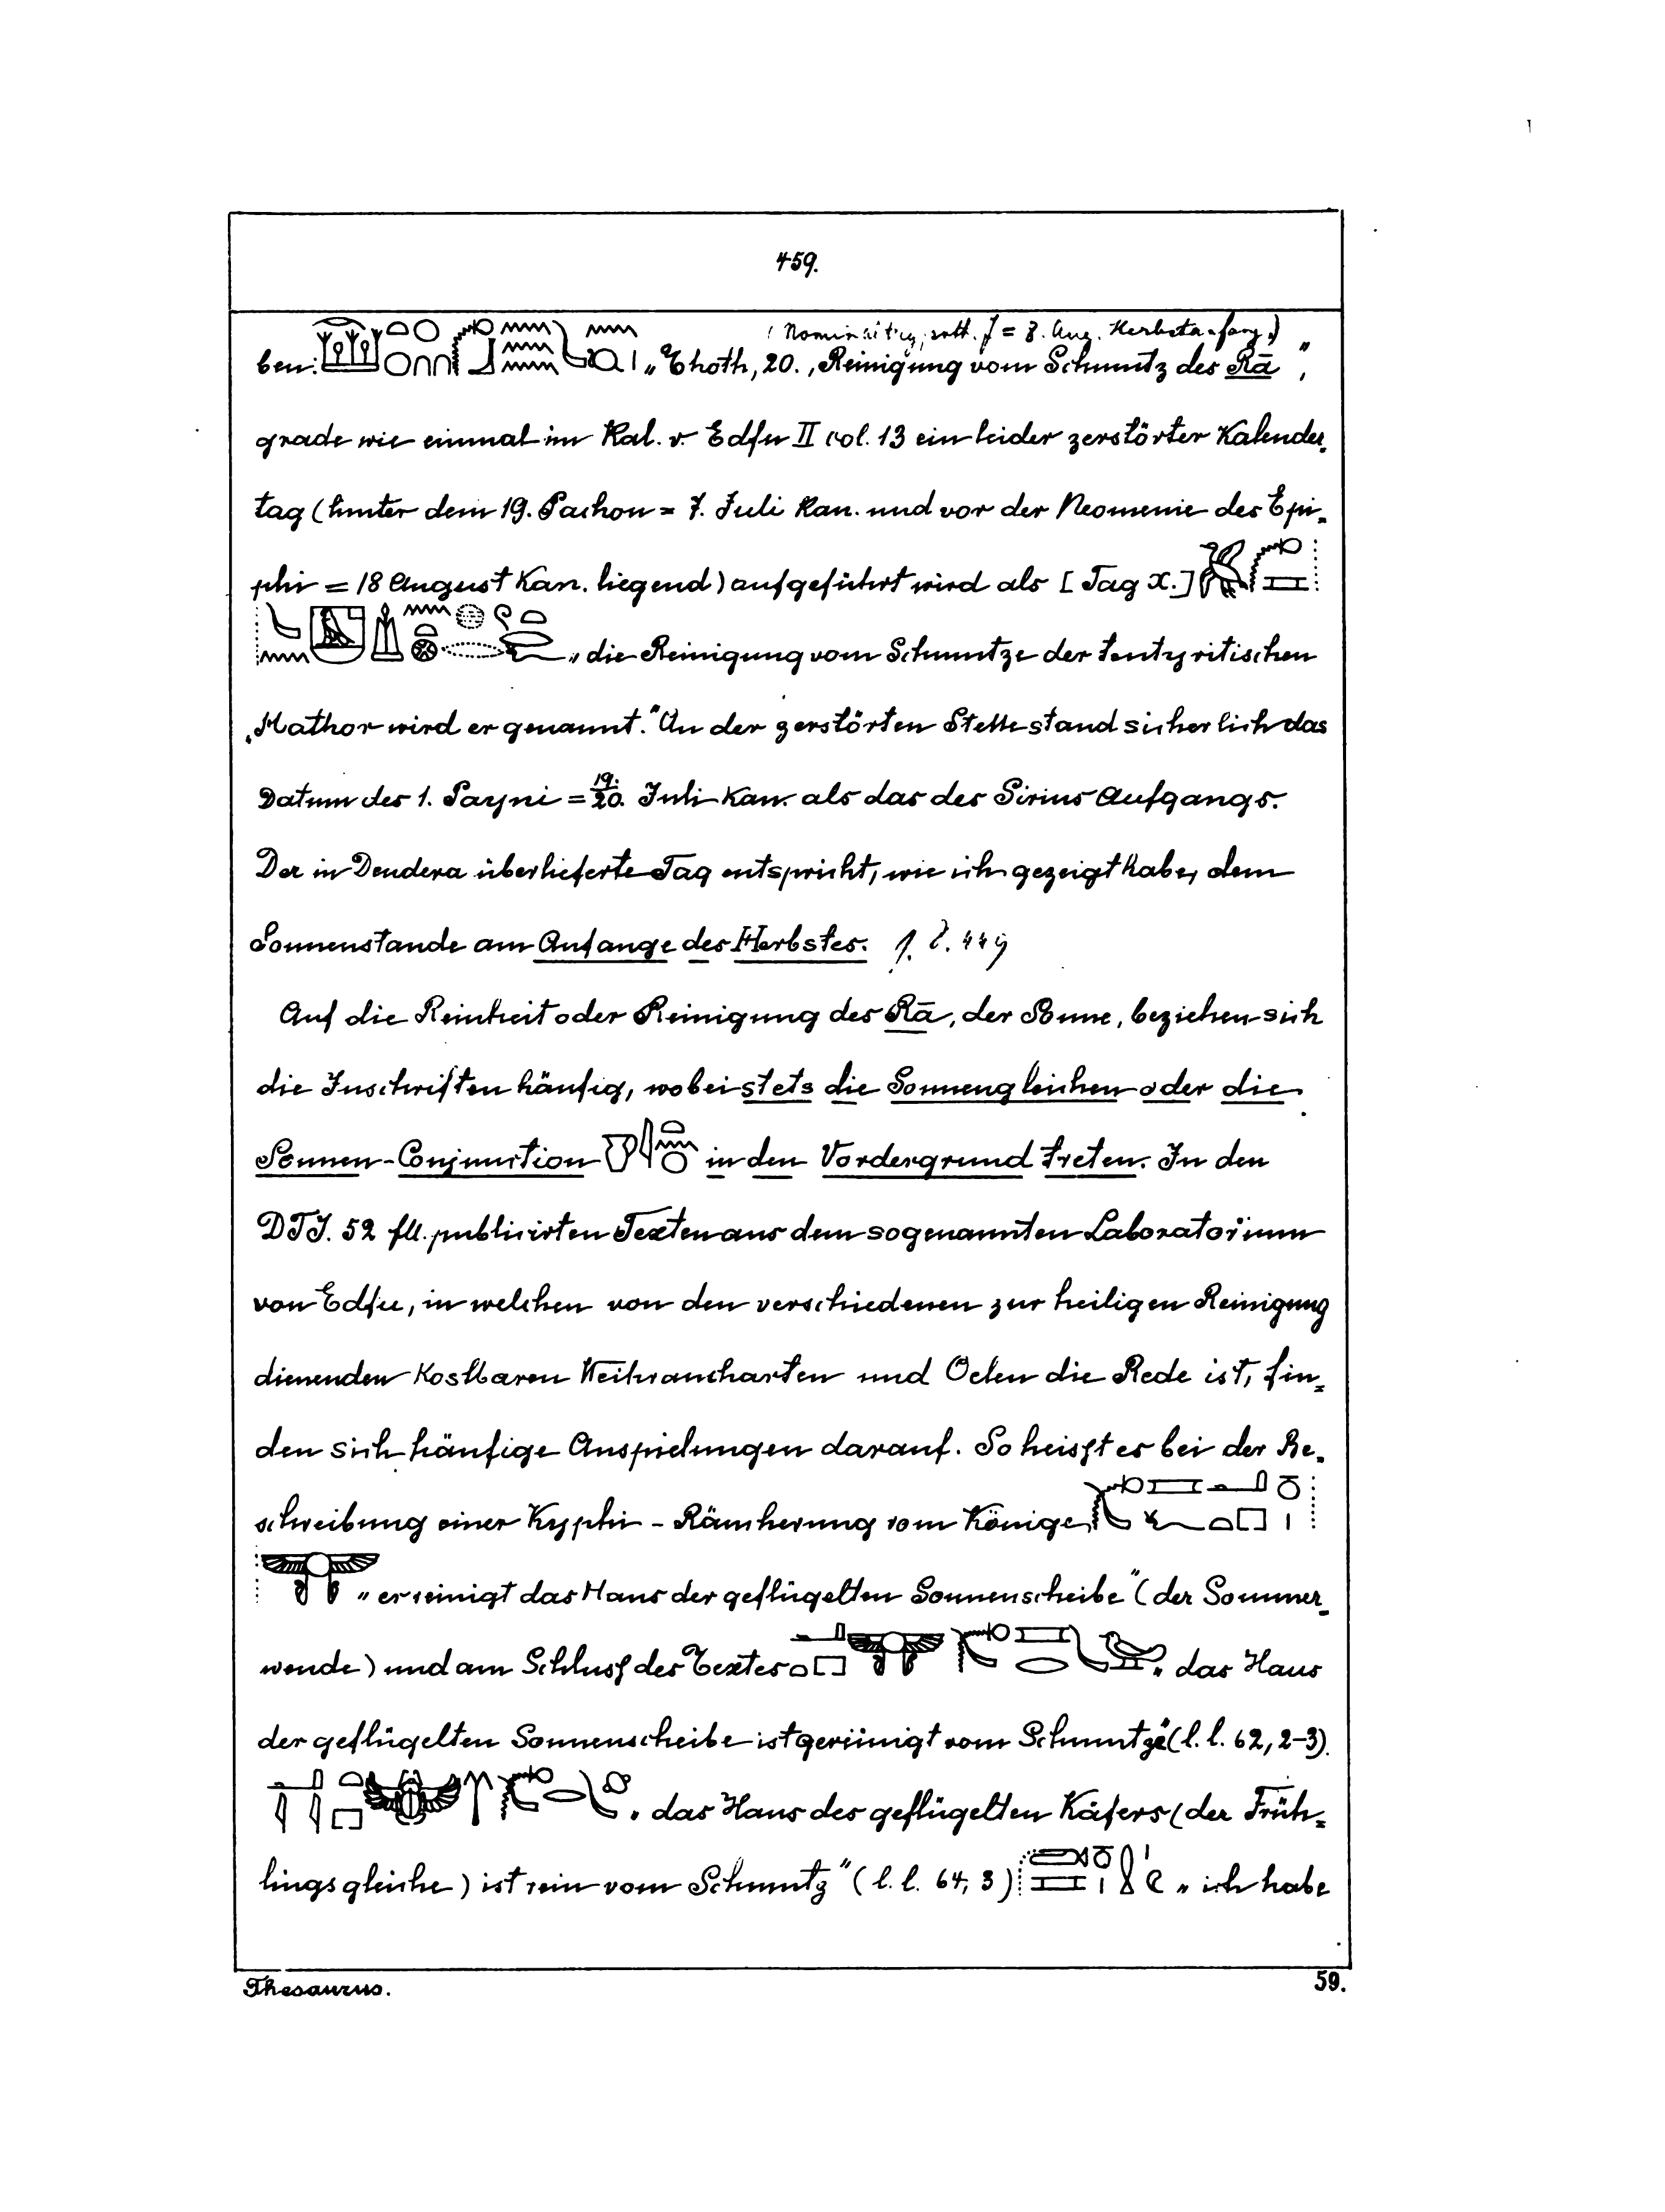 459.
ben: „Thoth, 20., Reinigung vom Schmutz des Rā",
grade wie einmal im Kal. v. Edfu II col. 13 ein leider zerstörter Kalender-
tag (hinter dem 19. Pachon = 7. Juli Kan. und vor der Neomenie des Epi-
phi = 18 August Kan. liegend) aufgeführt wird als [Tag x.]
„die Reinigung vom Schmutze der tentyritischen
„Hathor wird er genannt." An der zerstörten Stelle stand sicherlich das
Datum des 1. Payni = 19./20. Juli Kan. als das des Sirius Aufgangs.
Der in Dendera überlieferte Tag entspricht, wie ich gezeigt habe, dem
Sonnenstande am Anfange des Herbstes.
Auf die Reinheit oder Reinigung des Rā, der Sonne, beziehen sich
die Inschriften häufig, wobei stets die Sonnengleichen oder die
Sonnen-Conjunction in den Vordergrund treten. In den
DTJ. 52 fll. publicirten Texten aus dem sogenannten Laboratorium
von Edfu, in welchen von den verschiedenen zur heiligen Reinigung
dienenden kostbaren Weihraucharten und Oelen die Rede ist, fin-
den sich häufige Anspielungen darauf. So heisst es bei der Be-
schreibung einer Kyphi-Räucherung vom Könige
„er reinigt das Haus der geflügelten Sonnenscheibe" (der Sommer-
wende) und am Schluss des Textes „das Haus
der geflügelten Sonnenscheibe ist gereinigt vom Schmutze" (l. l. 62, 2-3).
„das Haus des geflügelten Käfers (der Früh-
lingsgleiche) ist rein vom Schmutz" (l. l. 64, 3) „ich habe
Thesaurus. 59.